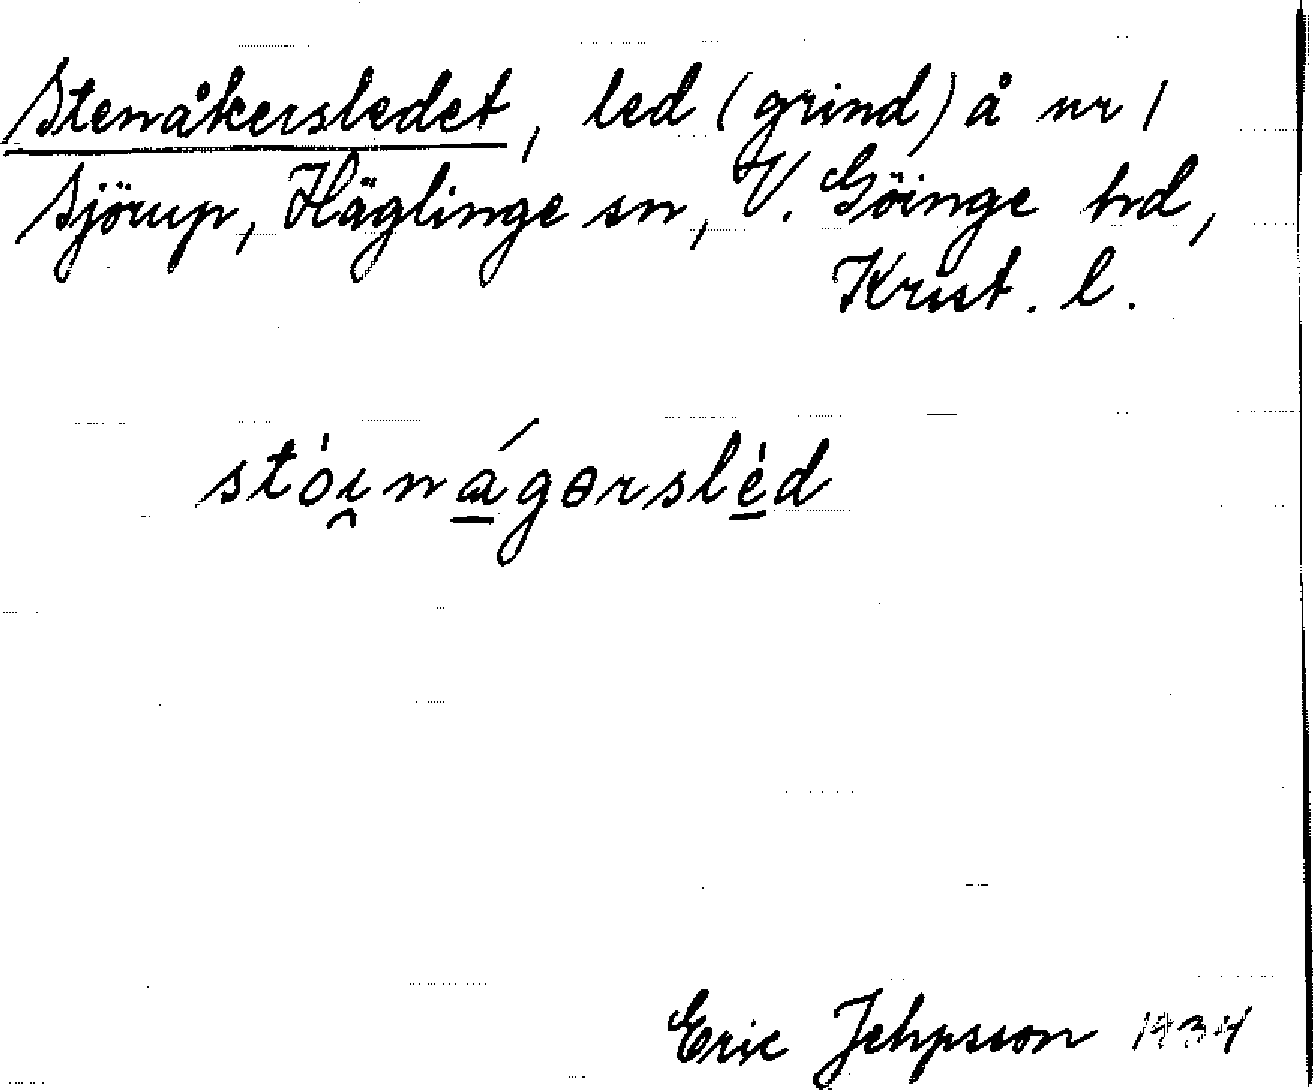 Stenåkersledet, led (grind) å nr 1
Sjörup, Häglinge sn, V. Göinge hd,
Krist. l.
stòi̯nágərslèd
Eric Jehpsson 1934